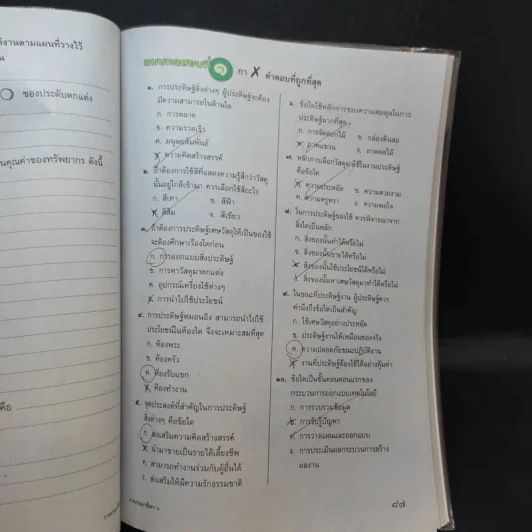 ล้งานตามแผนที่วางไว้
ของประดับตกแต่ง
นคุณค่าของทรัพยากร ดังนี้
คือ
แบบทดสอบที่ ๑ กา X คำตอบที่ถูกที่สุด
๑. การประดิษฐ์สิ่งต่างๆ ผู้ประดิษฐ์จะต้อง
มีความสามารถในด้านใด
ก. การตลาด
ข. ความรวดเร็ว
ค. มนุษยสัมพันธ์
ง. ความคิดสร้างสรรค์
๒. ถ้าต้องการใช้สีที่แสดงความรู้สึกว่าวัตถุ
นั้นอยู่ใกล้เข้ามา ควรเลือกใช้สีอะไร
ก. สีเทา ข. สีฟ้า
ค. สีส้ม ง. สีเขียว
๓. ถ้าต้องการประดิษฐ์เศษวัสดุให้เป็นของใช้
จะต้องศึกษาเรื่องใดก่อน
ก. การออกแบบสิ่งประดิษฐ์
ข. การหาวัสดุมาตกแต่ง
ค. อุปกรณ์เครื่องใช้ต่างๆ
ง. การนำไปใช้ประโยชน์
๔. การประดิษฐ์หมอนอิง สามารถนำไปใช้
ประโยชน์ในห้องใด จึงจะเหมาะสมที่สุด
ก. ห้องพระ
ข. ห้องครัว
ค. ห้องรับแขก
ง. ห้องทำงาน
๕. จุดประสงค์ที่สำคัญในการประดิษฐ์
สิ่งต่างๆ คือข้อใด
ก. ส่งเสริมความคิดสร้างสรรค์
ข. นำมาขายเป็นรายได้เลี้ยงชีพ
ค. สามารถทำงานร่วมกับผู้อื่นได้
ง. ส่งเสริมให้มีความรักธรรมชาติ
๖. ข้อใดใช้หลักการของความสมดุลในการ
ประดิษฐ์มากที่สุด
ก. การจัดดอกไม้ ข. กล่องดินสอ
ค. ภาพแขวน ง. ถาดผลไม้
๗. หลักการเลือกวัสดุมาใช้ในงานประดิษฐ์
คือข้อใด
ก. ความประหยัด ข. ความสวยงาม
ค. ความหรูหรา ง. ความพอใจ
๘. ในการประดิษฐ์ของใช้ ควรพิจารณาจาก
สิ่งใดเป็นหลัก
ก. สิ่งของนั้นทำได้หรือไม่
ข. สิ่งของนั้นขายได้หรือไม่
ค. สิ่งของนั้นใช้ประโยชน์ได้หรือไม่
ง. สิ่งของนั้นหาเศษวัสดุมาทำได้หรือไม่
๙. ในขณะที่ประดิษฐ์งาน ผู้ประดิษฐ์ควร
คำนึงถึงข้อใดเป็นสำคัญ
ก. ใช้เศษวัสดุอย่างประหยัด
ข. ประดิษฐ์งานให้เหมือนของจริง
ค. ความปลอดภัยขณะปฏิบัติงาน
ง. งานที่ประดิษฐ์ต้องใช้ได้อย่างคุ้มค่า
๑๐. ข้อใดเป็นขั้นตอนตอนแรกของ
กระบวนการออกแบบเทคโนโลยี
ก. การรวบรวมข้อมูล
ข. การรับรู้ปัญหา
ค. การวางแผนและออกแบบ
ง. การประเมินผลกระบวนการสร้าง
ผลงาน
๘๗